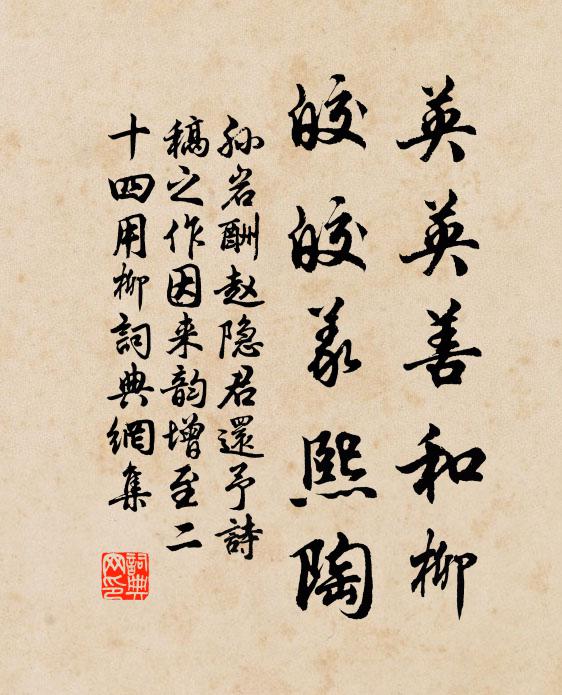 英英善和柳
皎皎義熙陶
孙岩酬赵隐君還予詩
稿之作因来韵增至二
十四用柳詞典網集
詞典网印